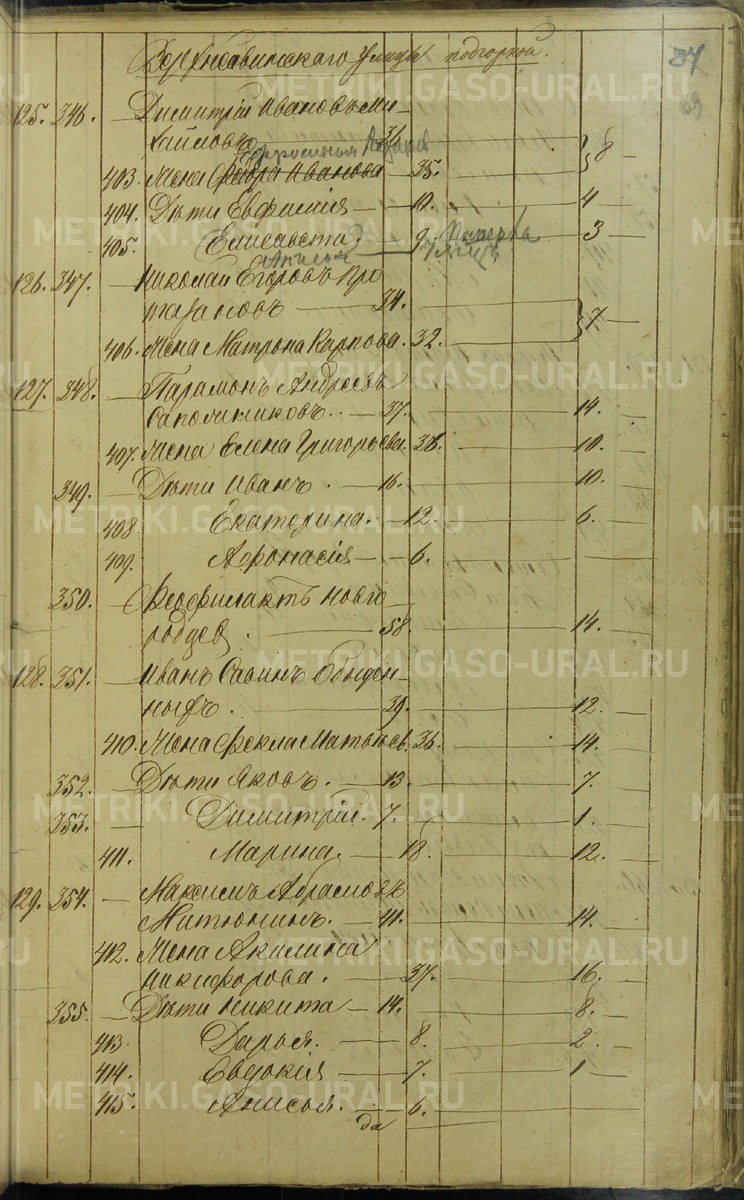 Верхисавинскаго улицы подгорной.
37
69
125. 346. — Димитрій Ивановъ Ми-
хайловъ — 36. — 8 —
Ефросинья
403. Жена Федра Иванова — 35.
404. Дѣти Евфимія — 10. — 4
405. Елисавета — 9. — 3 —
Анисья
126. 347. — Николай Егоровъ Про
тазановъ — 34. — 7 —
406. Жена Матрона Карпова. 32.
127. 348. — Парамонъ Андреевъ
Сапожниковъ. — 37. — 14. —
407. Жена Елена Григорьева. 36. — 10. —
349. — Дѣти Иванъ. — 16. — 10. —
408. Екатерина. — 12. — 6. —
409. Афонасія — 6. —
350. — Феофилактъ Новго
родцев. — 58. — 14. —
128. 351. — Иванъ Савинъ Обыден-
ныхъ. — 39. — 12. —
410. Жена Фекла Матвѣев. 36. — 14. —
352. — Дѣти Яковъ. — 13. — 7. —
353. — Димитрій. 7. — 1. —
411. Марина. — 18. — 12. —
129. 354. — Максимъ Абрамовъ
Митюнинъ. — 41. — 14. —
412. Жена Акилина
Никифорова. — 37. — 16. —
355. — Дѣти Никита — 14. — 8. —
413. Дарья. — 8. — 2. —
414. Евдокія — 7. — 1 —
415. Анисья. — 6. —
да
METRIKI.GASO-URAL.RU